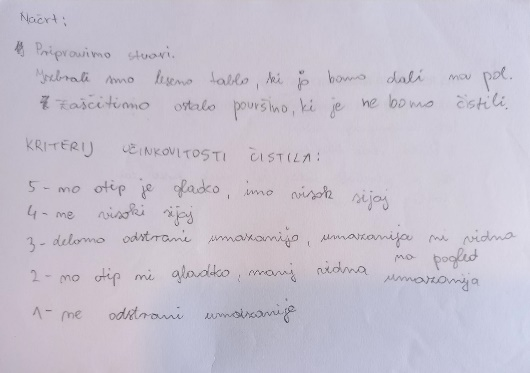 Načrt:
Pripravimo stvari.
Izbrali smo leseno tablo, ki jo bomo dali na pol.
Zaščitimo ostalo površino, ki je ne bomo čistili.
KRITERIJ UČINKOVITOSTI ČISTILA:
5 - na otip je gladko, ima visok sijaj
4 - ne visoki sijaj
3 - delno odstrani umazanijo, umazanija ni vidna
na pogled
2 - na otip ni gladko, manj vidna umazanija
1 - ne odstrani umazanije